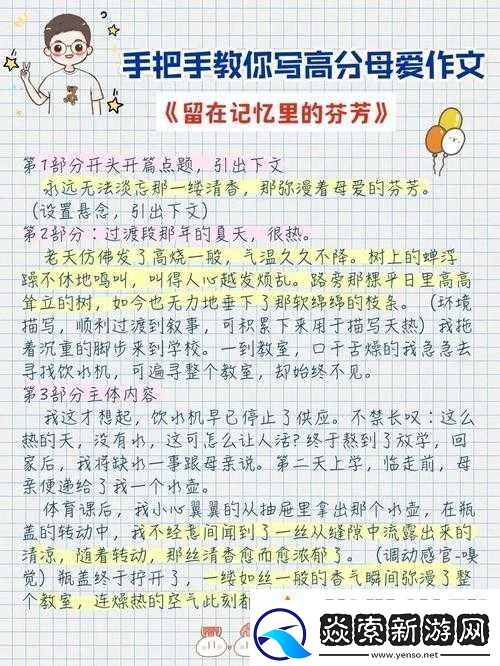 手把手教你写高分母爱作文
《留在记忆里的芬芳》
第1部分开头开篇点题，引出下文
永远无法淡忘那一缕清香，那弥漫着母爱的芬芳。
（设置悬念，引出下文）
第2部分：过渡段那年的夏天，很热。
老天仿佛发了高烧一般，气温久久不降。树上的蝉浮
躁不休地鸣叫，叫得人心越发烦乱。路旁那棵平日里高高
耸立的树，如今也无力地垂下了那软绵绵的枝条。（环境
描写，顺利过渡到叙事，可积累下来用于描写天热）我拖
着沉重的脚步来到学校。一到教室，口干舌燥的我急急去
寻找饮水机，可遍寻整个教室，却始终不见。
第3部分主体内容
我这才想起，饮水机早已停止了供应。不禁长叹：这么
热的天，没有水，这可怎么让人活？终于熬到了放学，回
家后，我将缺水一事跟母亲说。第二天上学，临走前，母
亲便递给了我一个水壶。
体育课后，我小心翼翼的从抽屉里拿出那个水壶，在瓶
盖的转动中，我不经意间闻到了一丝从缝隙中流露出来的
清凉，随着转动，那丝清香愈而愈浓郁了。（调动感官-嗅
觉）瓶盖终于拧开了，一缕如丝一般的香气瞬间弥漫了整
个教室，连燥热的空气此刻都
焱索新游网
www.yenso.net